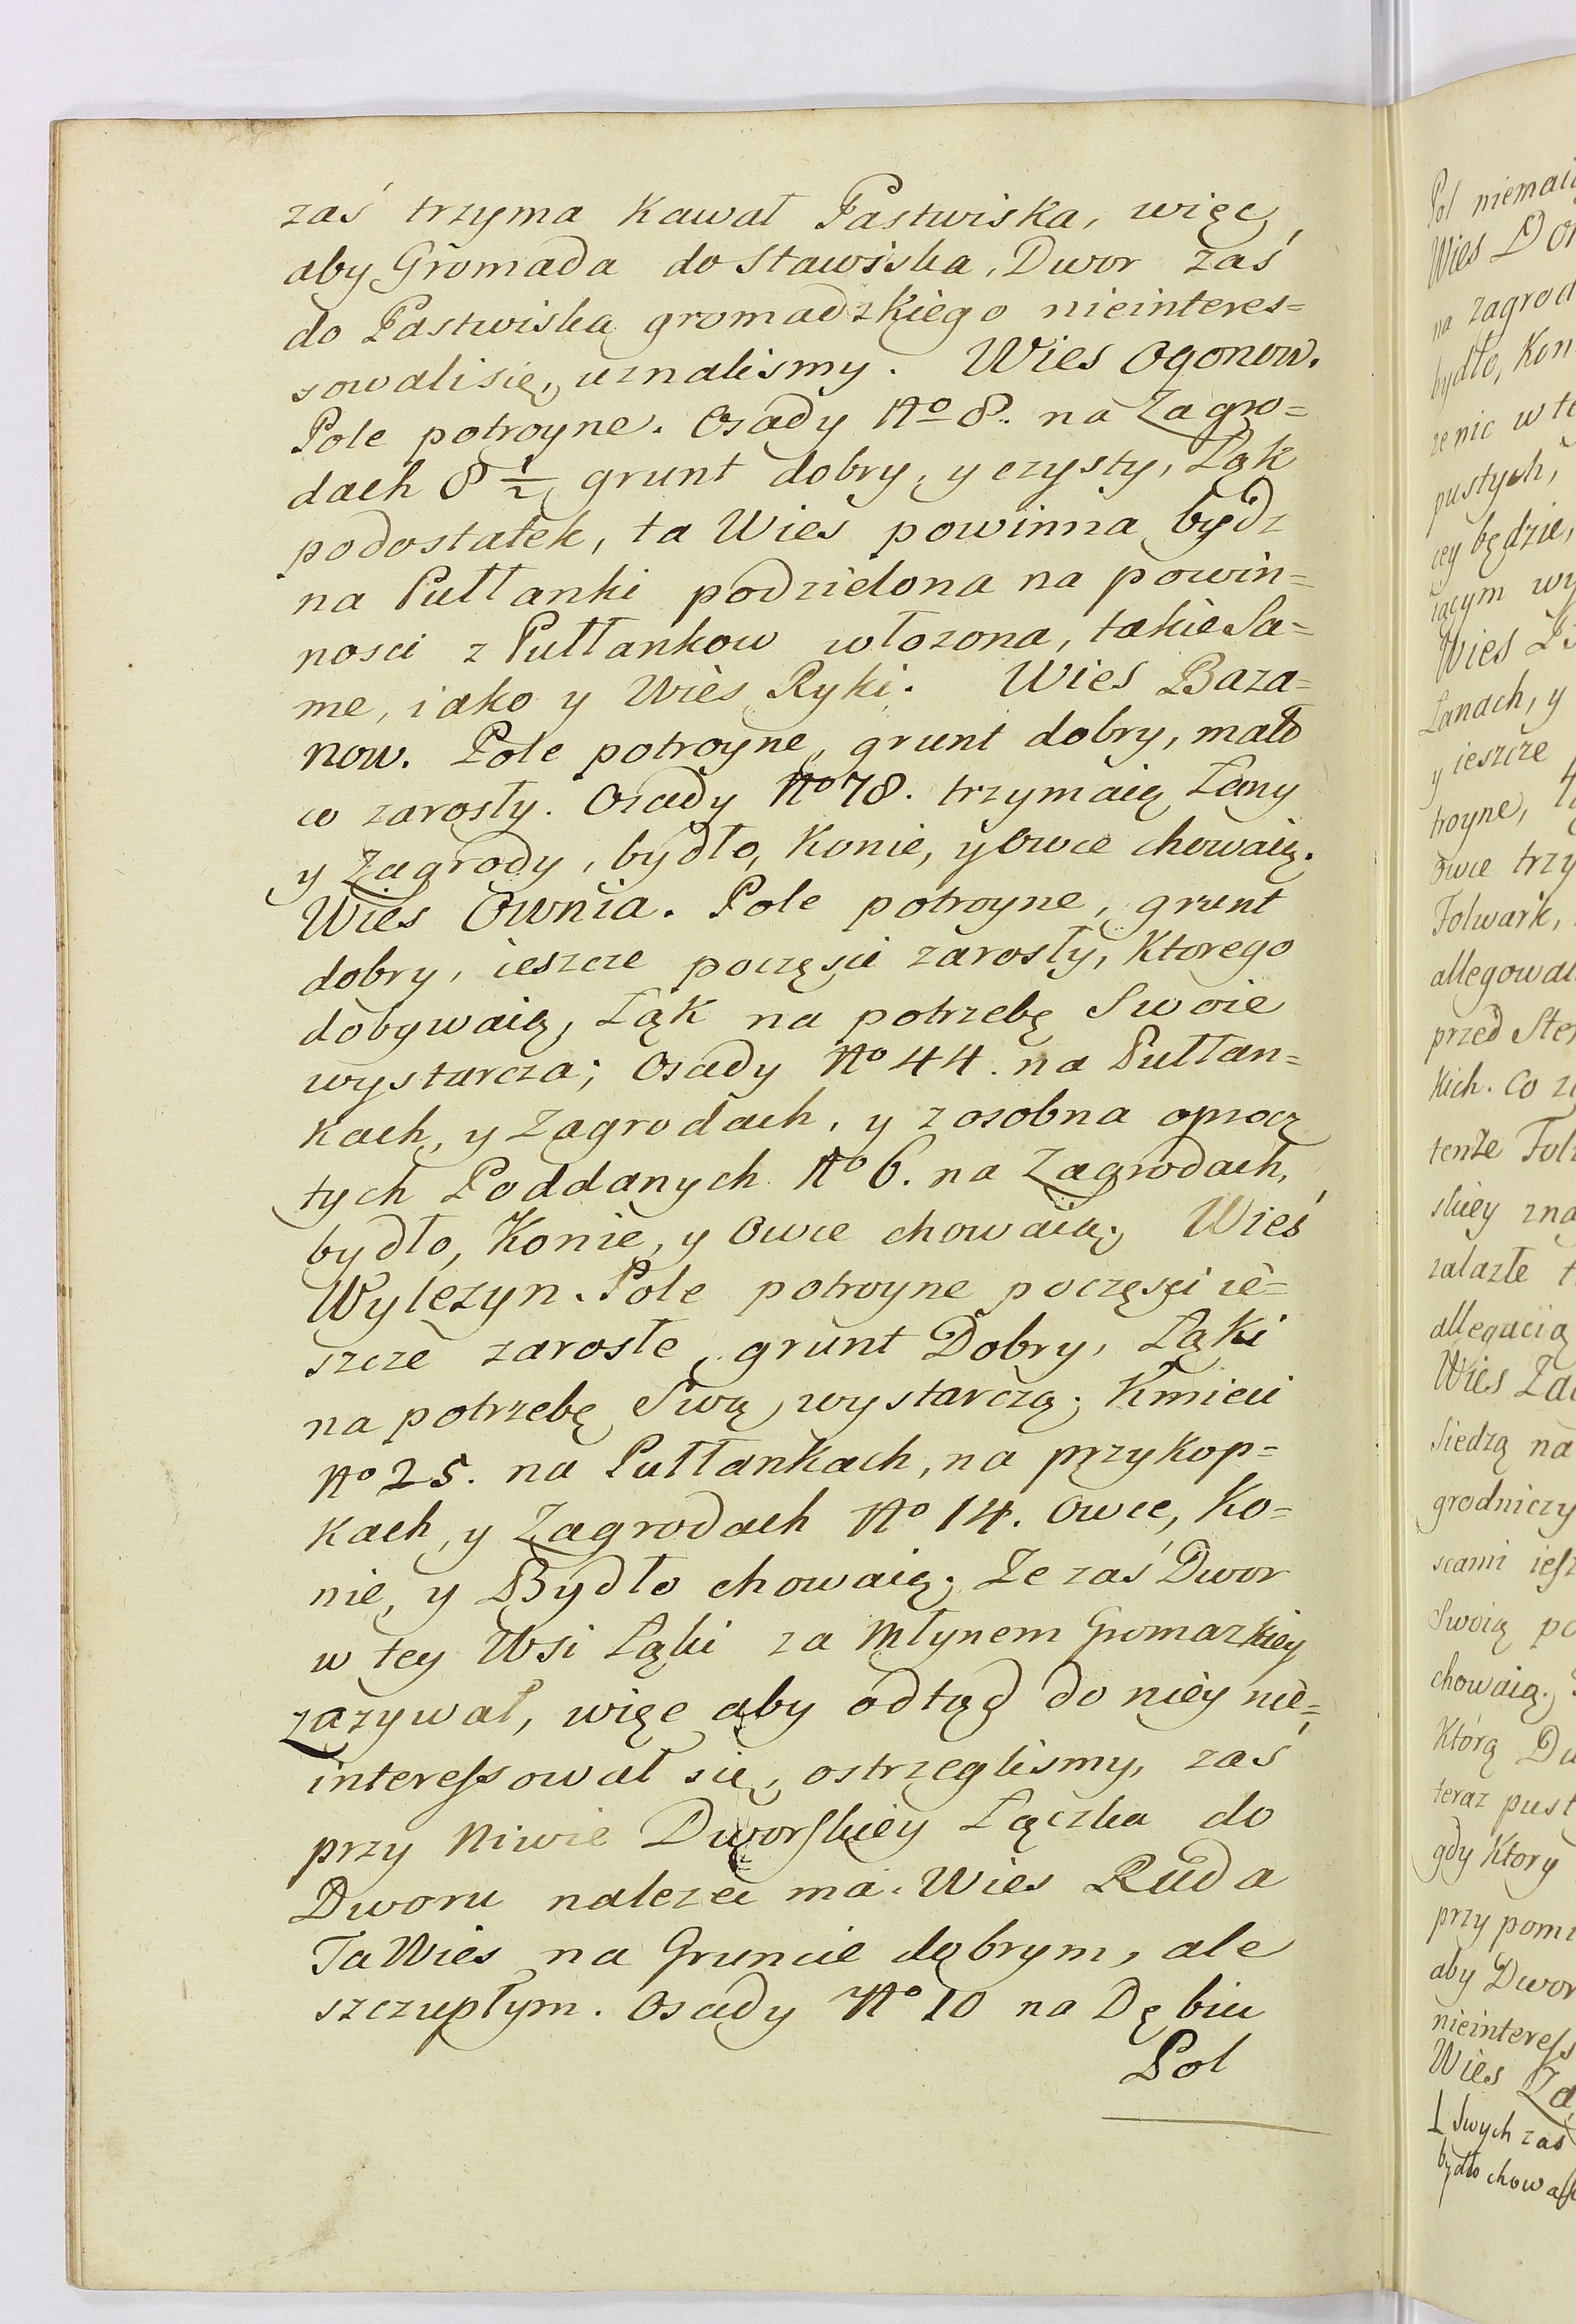 zaś trzyma kawał Pastwiska, więc,
aby Gromada do Stawiska, Dwor zaś
do Pastwiska gromadzkiego nieinteres=
sowali się, uznalismy. Wies Ogonow.
Pole potroyne. Osady No 8. na Zagro=
dach 8 1/2, grunt dobry, y czysty, Łąk
podostatek, ta Wies powinna bydz
na Pułłanki podzielona na powin=
nosci z Pułłankow włozona, takie Sa=
me, iako y Wies Ryki. Wies Baza=
now. Pole potroyne, grunt dobry, mało
co zarosły. Osady No 78. trzymaią Łany
y Zagrody, bydło, Konie, y Owce chowaią.
Wies Ownia. Pole potroyne, grunt
dobry, ieszcze poczęsci zarosły, Ktorego
dobywaią, Łąk na potrzebę Swoie
wystarcza; Osady No 44. na Pułłan=
kach, y Zagrodach, y zosobna oprocz
tych Poddanych No 6. na Zagrodach,
bydło, Konie, y Owce chowaią; Wieś
Wylezyn. Pole potroyne poczęsci ie=
szcze zarosłe, grunt Dobry, Łąki
na potrzebę Swą wystarczą; Kmieci
No 25. na Pułłankach, na przykop=
kach, y Zagrodach No 14. Owce, Ko=
nie, y Bydło chowaią; Ze zaś Dwor
w tey Wsi Łąki za Młynem Gromazkiey
zazywał, więc aby odtąd do niey nie=
interessował się, ostrzeglismy, zaś
przy Niwie Dworskiey Łączka do
Dworu nalezec ma. Wies Ruda
Ta Wies na Gruncie dobrym, ale
szczupłym. Osady No 10 na Dębiu
Pol
Pol niemaią
Wies
na zagrod
bydło, Kon
ze nic w te
pustych,
cey będzie,
iącym wy
Wies
Łanach, y
y ieszcze
troyne,
owce trzy
Folwark,
allegowal
przed Ste
kich. Co
tenze Fol
skiey zna
zalazłe
allegacią
Wies
Siedzą na
grodniczy
scami iesz
Swoią po
chowaią.
Którą Dw
teraz pust
gdy Ktory
przy pom
aby Dwor
nieinteress
Wies
Swych zas
bydło chow